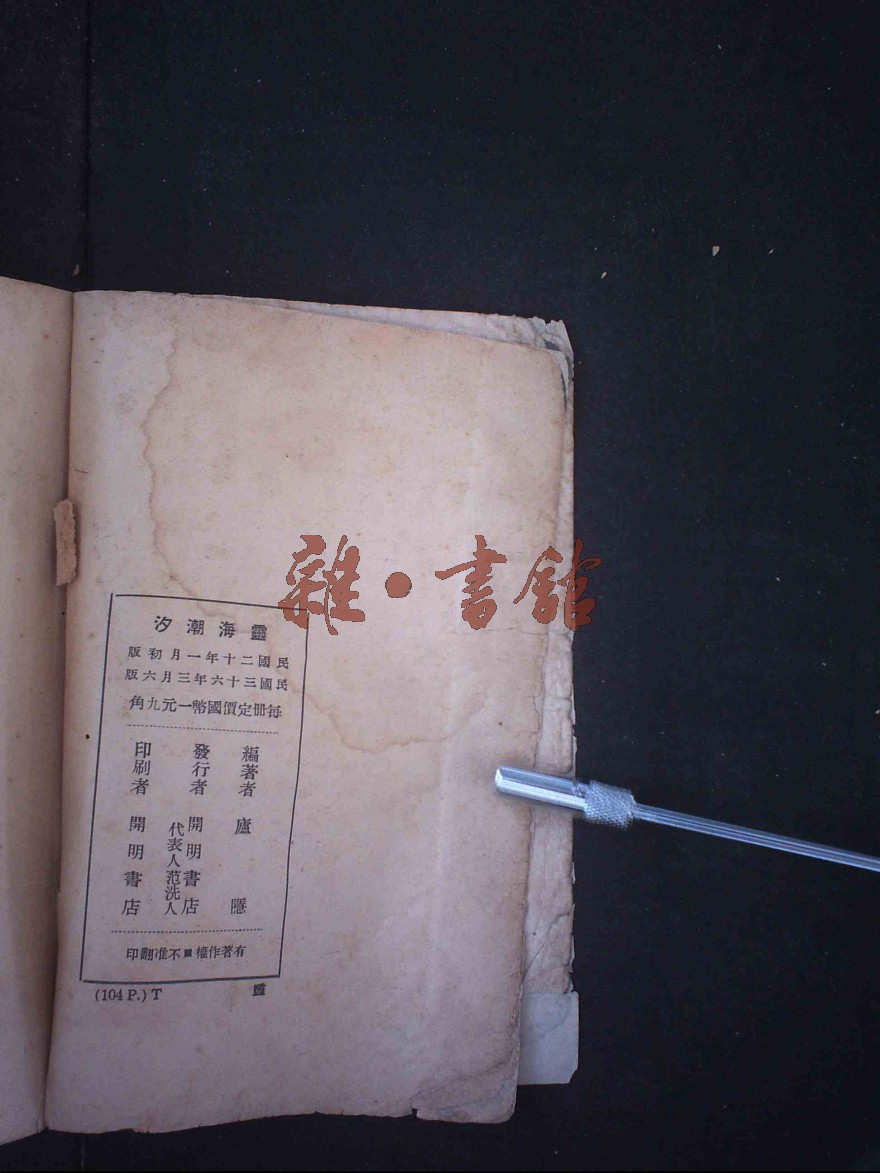 雜·書館
靈海潮汐
民國二十年一月初版
民國三十六年三月六版
每冊定價國幣一元九角
編著者 廬隱
發行者 開明書店
代表人范洗人
印刷者 開明書店
有著作權■不准翻印
(104 P.) T
靈